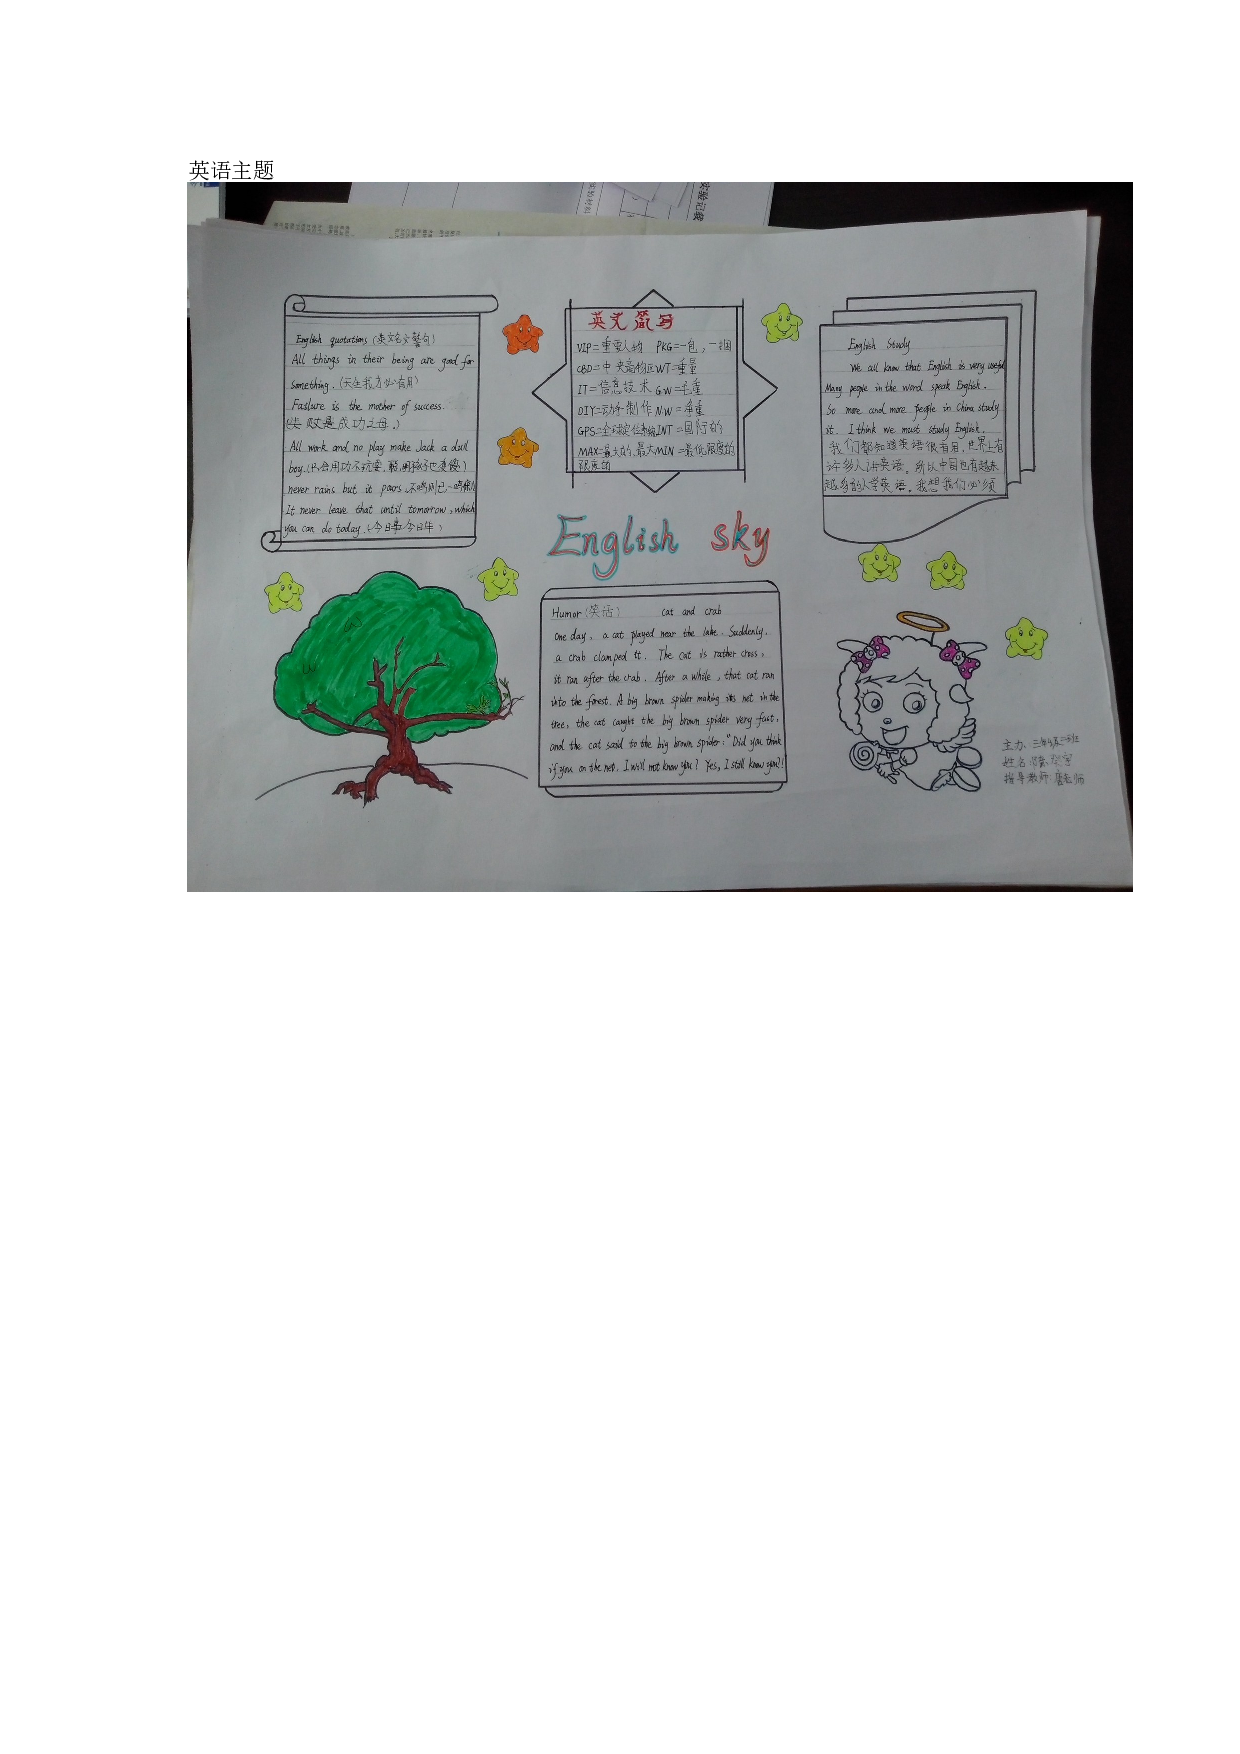 英语主题
English quotations (英文名言警句)
All things in their being are good for
something. (天生我才必有用)
Failure is the mother of success.
(失败是成功之母。)
All work and no play make Jack a dull
boy. (只会用功不玩耍,聪明孩子也变傻)
never rains but it pours.
It never leave that until tomorrow, which
you can do today. (今日事今日毕)
英文简写
VIP=重要人物 PKG=一包,一捆
CBD=中央商物区 WT=重量
IT=信息技术 GW=毛重
DIY=动手制作 NW=净重
GPS=全球定位系统 INT=国际的
MAX=最大的,最大 MIN=最低限度的
限度的
English Study
We all know that English is very useful
Many people in the word speak English.
So more and more people in China study
it. I think we must study English.
我们都知道英语很有用,世界上有
许多人讲英语。所以中国也有越来
越多的人学英语。我想我们必须
English sky
Humor (笑话) cat and crab
One day, a cat played near the lake. Suddenly,
a crab clamped it. The cat is rather cross,
it ran after the crab. After a while, that cat ran
into the forest. A big brown spider making its net in the
tree, the cat caught the big brown spider very fast,
and the cat said to the big brown spider: "Did you think
if you on the net, I will not know you? Yes, I still know you!!
主办:三年级二班
姓名:
指导教师:唐老师